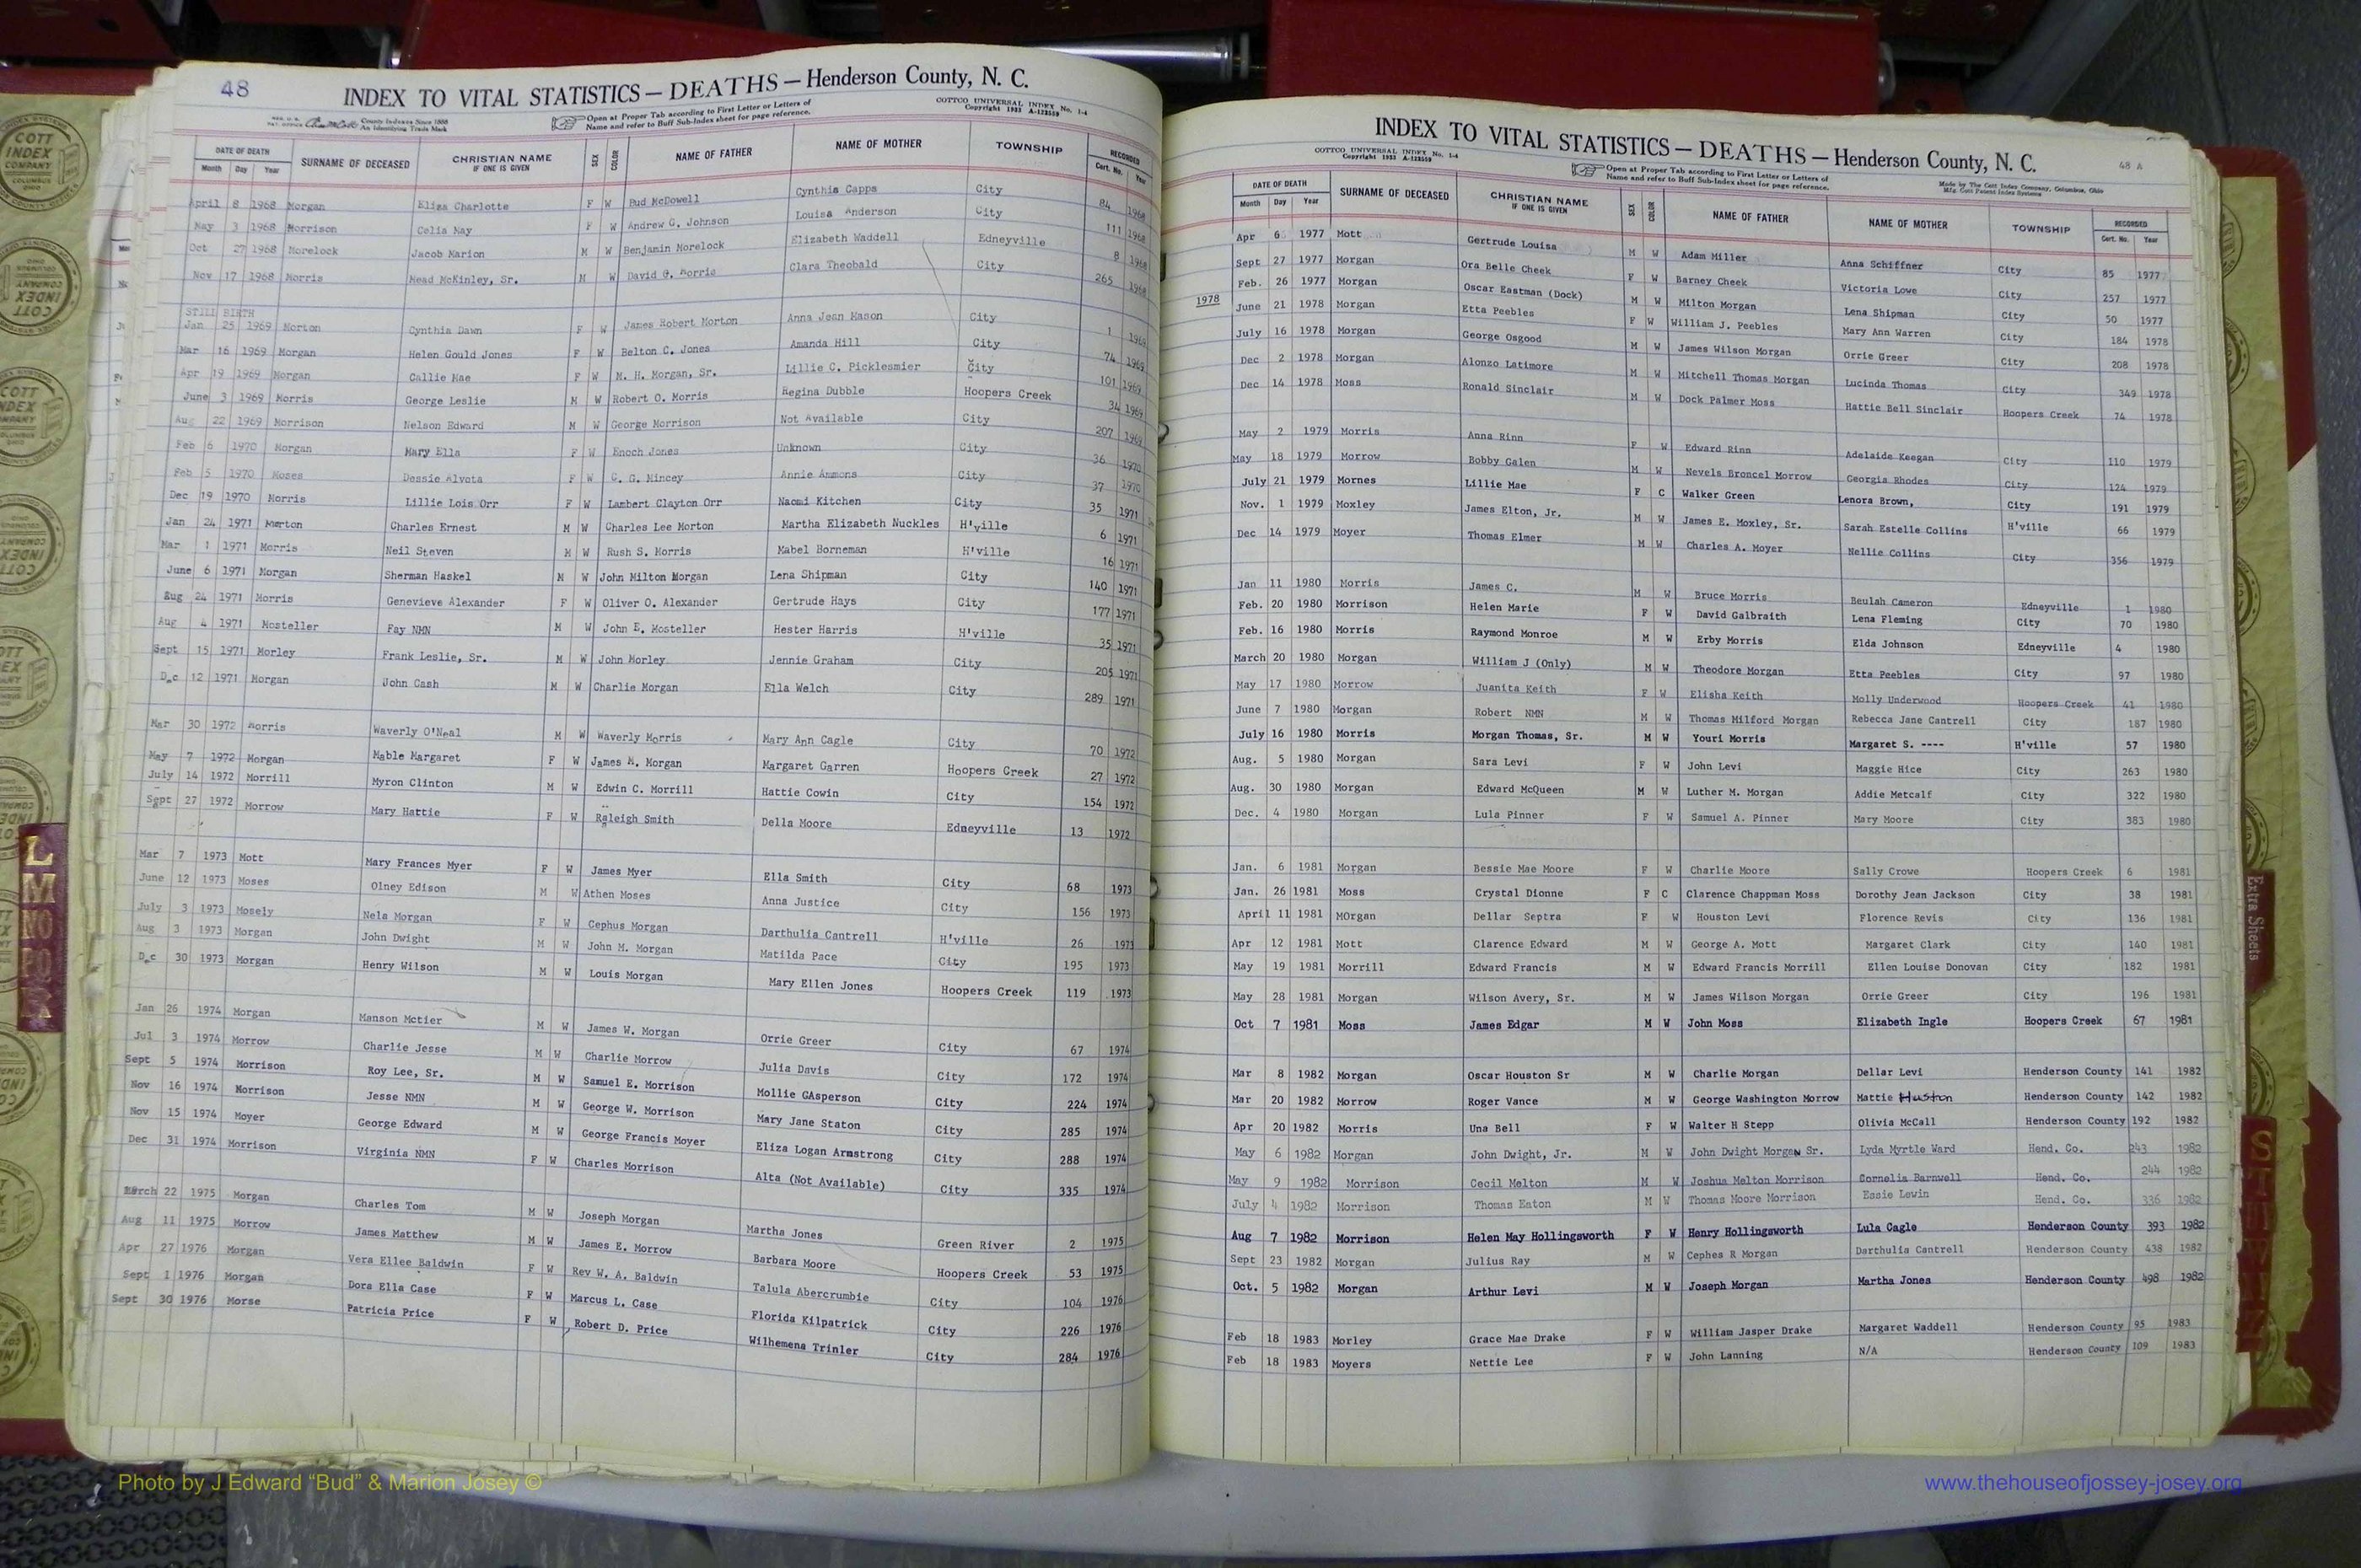 48
INDEX TO VITAL STATISTICS — DEATHS — Henderson County, N. C.
County Indexes Since 1888
An Identifying Trade Mark
Open at Proper Tab according to First Letter or Letters of
Name and refer to Buff Sub-Index sheet for page reference.
COTTCO UNIVERSAL INDEX No. 1-4
Copyright 1933 A-123559
DATE OF DEATH SURNAME OF DECEASED CHRISTIAN NAME IF ONE IS GIVEN SEX COLOR NAME OF FATHER NAME OF MOTHER TOWNSHIP RECORDED
Month Day Year Cert. No. Year
April 8 1968 Morgan Eliza Charlotte F W Bud McDowell Cynthia Capps City 84 1968
May 3 1968 Morrison Celia May F W Andrew G. Johnson Louisa Anderson City 111 1968
Oct 27 1968 Morelock Jacob Marion M W Benjamin Morelock Elizabeth Waddell Edneyville 8 1968
Nov 17 1968 Morris Mead McKinley, Sr. M W David G. Morris Clara Theobald City 265 1968
STILL BIRTH
Jan 25 1969 Morton Cynthia Dawn F W James Robert Morton Anna Jean Mason City 1 1969
Mar 16 1969 Morgan Helen Gould Jones F W Belton C. Jones Amanda Hill City 74 1969
Apr 19 1969 Morgan Callie Mae F W M. H. Morgan, Sr. Lillie C. Picklesmier City 101 1969
June 3 1969 Morris George Leslie M W Robert O. Morris Regina Dubble Hoopers Creek 34 1969
Aug 22 1969 Morrison Nelson Edward M W George Morrison Not Available City 207 1969
Feb 6 1970 Morgan Mary Ella F W Enoch Jones Unknown City 36 1970
Feb 5 1970 Moses Dessie Alvota F W C. G. Mincey Annie Ammons City 37 1970
Dec 19 1970 Morris Lillie Lois Orr F W Lambert Clayton Orr Naomi Kitchen City 35 1971
Jan 24 1971 Morton Charles Ernest M W Charles Lee Morton Martha Elizabeth Nuckles H'ville 6 1971
Mar 1 1971 Morris Neil Steven M W Rush S. Morris Mabel Borneman H'ville 16 1971
June 6 1971 Morgan Sherman Haskel M W John Milton Morgan Lena Shipman City 140 1971
Aug 24 1971 Morris Genevieve Alexander F W Oliver O. Alexander Gertrude Hays City 177 1971
Aug 4 1971 Mosteller Fay NMN M W John E. Mosteller Hester Harris H'ville 35 1971
Sept 15 1971 Morley Frank Leslie, Sr. M W John Morley Jennie Graham City 205 1971
Dec 12 1971 Morgan John Cash M W Charlie Morgan Ella Welch City 289 1971
Mar 30 1972 Morris Waverly O'Neal M W Waverly Morris Mary Ann Cagle City 70 1972
May 7 1972 Morgan Mable Margaret F W James M. Morgan Margaret Garren Hoopers Creek 27 1972
July 14 1972 Morrill Myron Clinton M W Edwin C. Morrill Hattie Cowin City 154 1972
Sept 27 1972 Morrow Mary Hattie F W Raleigh Smith Della Moore Edneyville 13 1972
Mar 7 1973 Mott Mary Frances Myer F W James Myer Ella Smith City 68 1973
June 12 1973 Moses Olney Edison M W Athen Moses Anna Justice City 156 1973
July 3 1973 Mosely Nela Morgan F W Cephus Morgan Darthulia Cantrell H'ville 26 1973
Aug 3 1973 Morgan John Dwight M W John M. Morgan Matilda Pace City 195 1973
Dec 30 1973 Morgan Henry Wilson M W Louis Morgan Mary Ellen Jones Hoopers Creek 119 1973
Jan 26 1974 Morgan Manson Mctier M W James W. Morgan Orrie Greer City 67 1974
Jul 3 1974 Morrow Charlie Jesse M W Charlie Morrow Julia Davis City 172 1974
Sept 5 1974 Morrison Roy Lee, Sr. M W Samuel E. Morrison Mollie GAsperson City 224 1974
Nov 16 1974 Morrison Jesse NMN M W George W. Morrison Mary Jane Staton City 285 1974
Nov 15 1974 Moyer George Edward M W George Francis Moyer Eliza Logan Armstrong City 288 1974
Dec 31 1974 Morrison Virginia NMN F W Charles Morrison Alta (Not Available) City 335 1974
March 22 1975 Morgan Charles Tom M W Joseph Morgan Martha Jones Green River 2 1975
Aug 11 1975 Morrow James Matthew M W James E. Morrow Barbara Moore Hoopers Creek 53 1975
Apr 27 1976 Morgan Vera Ellee Baldwin F W Rev W. A. Baldwin Talula Abercrumbie City 104 1976
Sept 1 1976 Morgan Dora Ella Case F W Marcus L. Case Florida Kilpatrick City 226 1976
Sept 30 1976 Morse Patricia Price F W Robert D. Price Wilhemena Trinler City 284 1976
INDEX TO VITAL STATISTICS — DEATHS — Henderson County, N. C.
48 A
COTTCO UNIVERSAL INDEX No. 1-4
Copyright 1933 A-123559
Open at Proper Tab according to First Letter or Letters of
Name and refer to Buff Sub-Index sheet for page reference.
Made by The Cott Index Company, Columbus, Ohio
Mfg. Cott Patent Index Systems
DATE OF DEATH SURNAME OF DECEASED CHRISTIAN NAME IF ONE IS GIVEN SEX COLOR NAME OF FATHER NAME OF MOTHER TOWNSHIP RECORDED
Month Day Year Cert. No. Year
Apr 6 1977 Mott Gertrude Louisa M W Adam Miller Anna Schiffner City 85 1977
Sept 27 1977 Morgan Ora Belle Cheek F W Barney Cheek Victoria Lowe City 257 1977
Feb. 26 1977 Morgan Oscar Eastman (Dock) M W Milton Morgan Lena Shipman City 50 1977
1978 June 21 1978 Morgan Etta Peebles F W William J. Peebles Mary Ann Warren City 184 1978
July 16 1978 Morgan George Osgood M W James Wilson Morgan Orrie Greer City 208 1978
Dec 2 1978 Morgan Alonzo Latimore M W Mitchell Thomas Morgan Lucinda Thomas City 349 1978
Dec 14 1978 Moss Ronald Sinclair M W Dock Palmer Moss Hattie Bell Sinclair Hoopers Creek 74 1978
May 2 1979 Morris Anna Rinn F W Edward Rinn Adelaide Keegan City 110 1979
May 18 1979 Morrow Bobby Galen M W Nevels Broncel Morrow Georgia Rhodes City 124 1979
July 21 1979 Mornes Lillie Mae F C Walker Green Lenora Brown, City 191 1979
Nov. 1 1979 Moxley James Elton, Jr. M W James E. Moxley, Sr. Sarah Estelle Collins H'ville 66 1979
Dec 14 1979 Moyer Thomas Elmer M W Charles A. Moyer Nellie Collins City 356 1979
Jan 11 1980 Morris James C. M W Bruce Morris Beulah Cameron Edneyville 1 1980
Feb. 20 1980 Morrison Helen Marie F W David Galbraith Lena Fleming City 70 1980
Feb. 16 1980 Morris Raymond Monroe M W Erby Morris Elda Johnson Edneyville 4 1980
March 20 1980 Morgan William J (Only) M W Theodore Morgan Etta Peebles City 97 1980
May 17 1980 Morrow Juanita Keith F W Elisha Keith Molly Underwood Hoopers Creek 41 1980
June 7 1980 Morgan Robert NMN M W Thomas Milford Morgan Rebecca Jane Cantrell City 187 1980
July 16 1980 Morris Morgan Thomas, Sr. M W Youri Morris Margaret S. ---- H'ville 57 1980
Aug. 5 1980 Morgan Sara Levi F W John Levi Maggie Hice City 263 1980
Aug. 30 1980 Morgan Edward McQueen M W Luther M. Morgan Addie Metcalf City 322 1980
Dec. 4 1980 Morgan Lula Pinner F W Samuel A. Pinner Mary Moore City 383 1980
Jan. 6 1981 Morgan Bessie Mae Moore F W Charlie Moore Sally Crowe Hoopers Creek 6 1981
Jan. 26 1981 Moss Crystal Dionne F C Clarence Chappman Moss Dorothy Jean Jackson City 38 1981
April 11 1981 MOrgan Dellar Septra F W Houston Levi Florence Revis City 136 1981
Apr 12 1981 Mott Clarence Edward M W George A. Mott Margaret Clark City 140 1981
May 19 1981 Morrill Edward Francis M W Edward Francis Morrill Ellen Louise Donovan City 182 1981
May 28 1981 Morgan Wilson Avery, Sr. M W James Wilson Morgan Orrie Greer City 196 1981
Oct 7 1981 Moss James Edgar M W John Moss Elizabeth Ingle Hoopers Creek 67 1981
Mar 8 1982 Morgan Oscar Houston Sr M W Charlie Morgan Dellar Levi Henderson County 141 1982
Mar 20 1982 Morrow Roger Vance M W George Washington Morrow Mattie Huston Henderson County 142 1982
Apr 20 1982 Morris Una Bell F W Walter H Stepp Olivia McCall Henderson County 192 1982
May 6 1982 Morgan John Dwight, Jr. M W John Dwight Morgan Sr. Lyda Myrtle Ward Hend. Co. 243 1982
May 9 1982 Morrison Cecil Melton M W Joshua Melton Morrison Cornelia Barnwell Hend. Co. 244 1982
July 4 1982 Morrison Thomas Eaton M W Thomas Moore Morrison Essie Lewin Hend. Co. 336 1982
Aug 7 1982 Morrison Helen May Hollingsworth F W Henry Hollingsworth Lula Cagle Henderson County 393 1982
Sept 23 1982 Morgan Julius Ray M W Cephes R Morgan Darthulia Cantrell Henderson County 438 1982
Oct. 5 1982 Morgan Arthur Levi M W Joseph Morgan Martha Jones Henderson County 498 1982
Feb 18 1983 Morley Grace Mae Drake F W William Jasper Drake Margaret Waddell Henderson County 95 1983
Feb 18 1983 Moyers Nettie Lee F W John Lanning N/A Henderson County 109 1983
COTT INDEX COMPANY
L
M
NO
Extra Sheets
Photo by J Edward “Bud” & Marion Josey ©
www.thehouseofjossey-josey.org